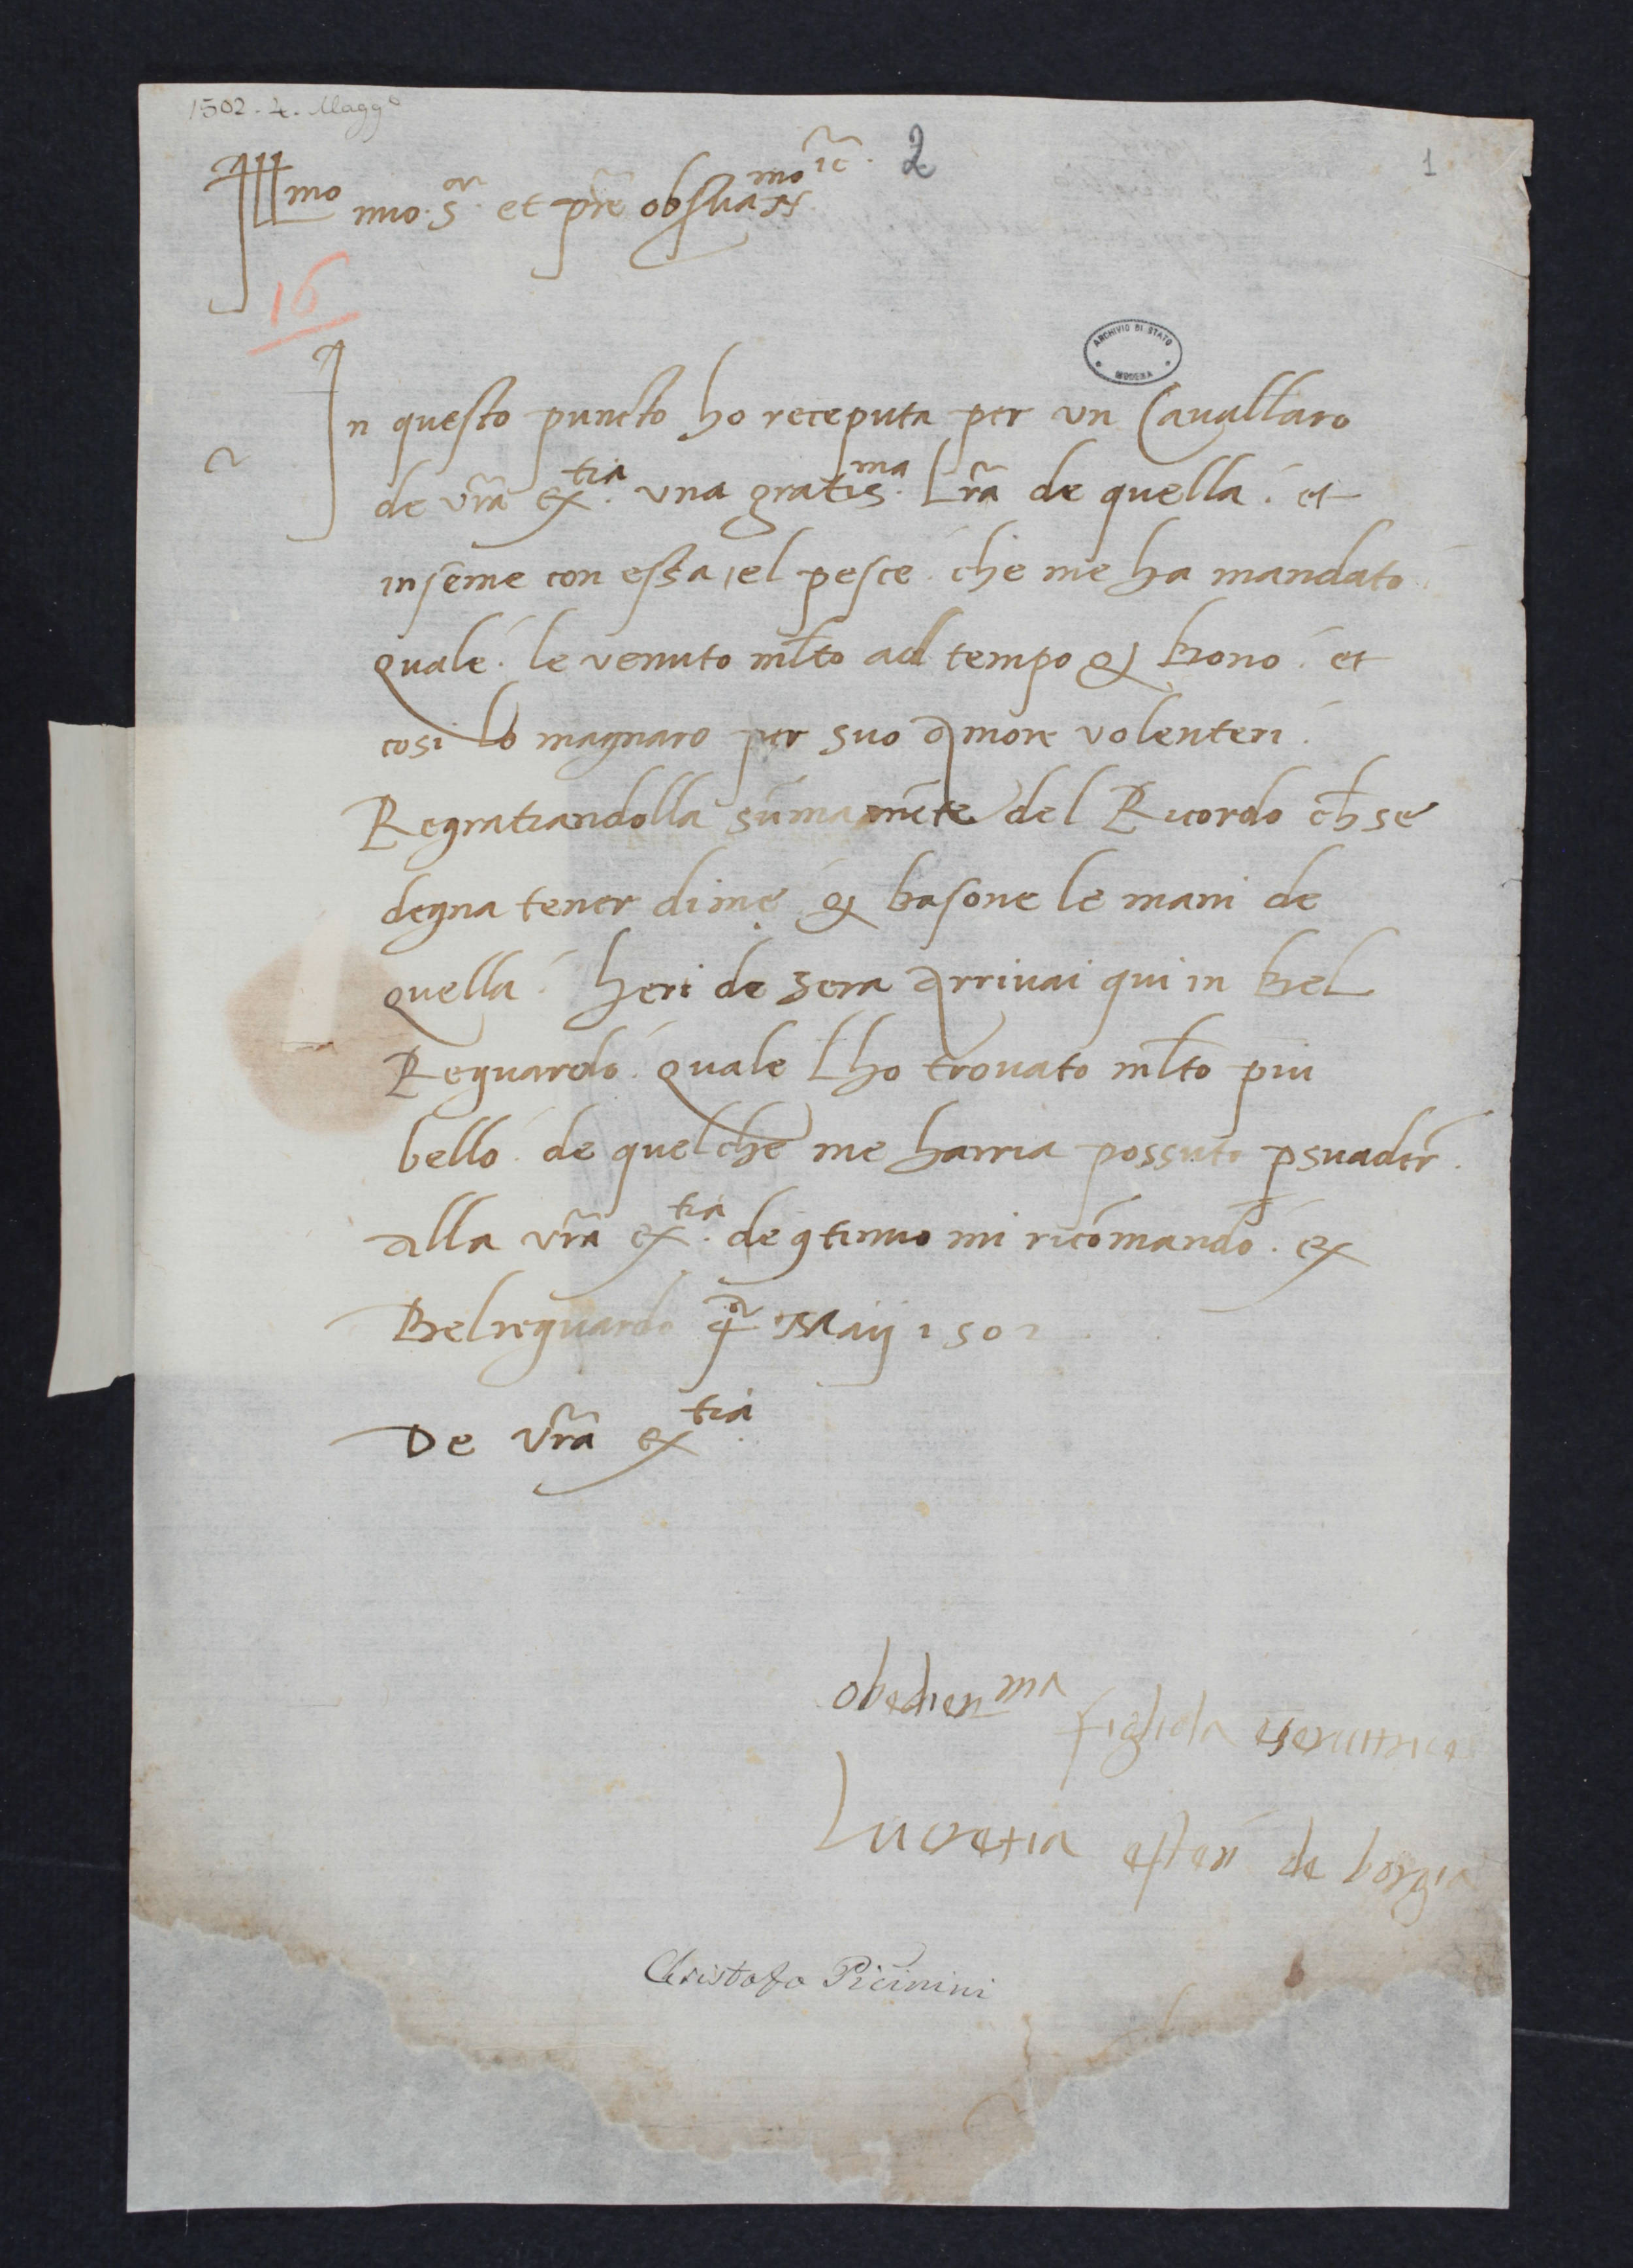 1502. 4. Magg.o
2
1
Ill.mo mio. S.or et pr̃e obser.mo ec̃.
16
ARCHIVIO DI STATO
MODENA
In questo puncto ho receputa per un Cauallaro
de vr̃a ex.tia una gratis.ma Lr̃a de quella. et
insẽme con essa, el pesce che me ha mandato
quale. le venuto ml̃to ad tempo & bono. et
cosi lo magnaro per suo Amore volenteri.
Regratiandolla sũmamẽte del Ricordo ch̃ se
degna tener di me & basone le mani de
quella. heri de sera Arriuai qui in Bel
Reguardo. quale lho trouato ml̃to piu
bello. de quelche me harria possuto ꝑsuader.
Alla vr̃a ex.tia de ꝯtinuo mi ricõmando. ex
Belreguardo 4ª Maij 1502
De vr̃a ex.tia
obedien.ma figliola e seruitrice
Lucretia esteñ de borgia
Cristofo Picinini